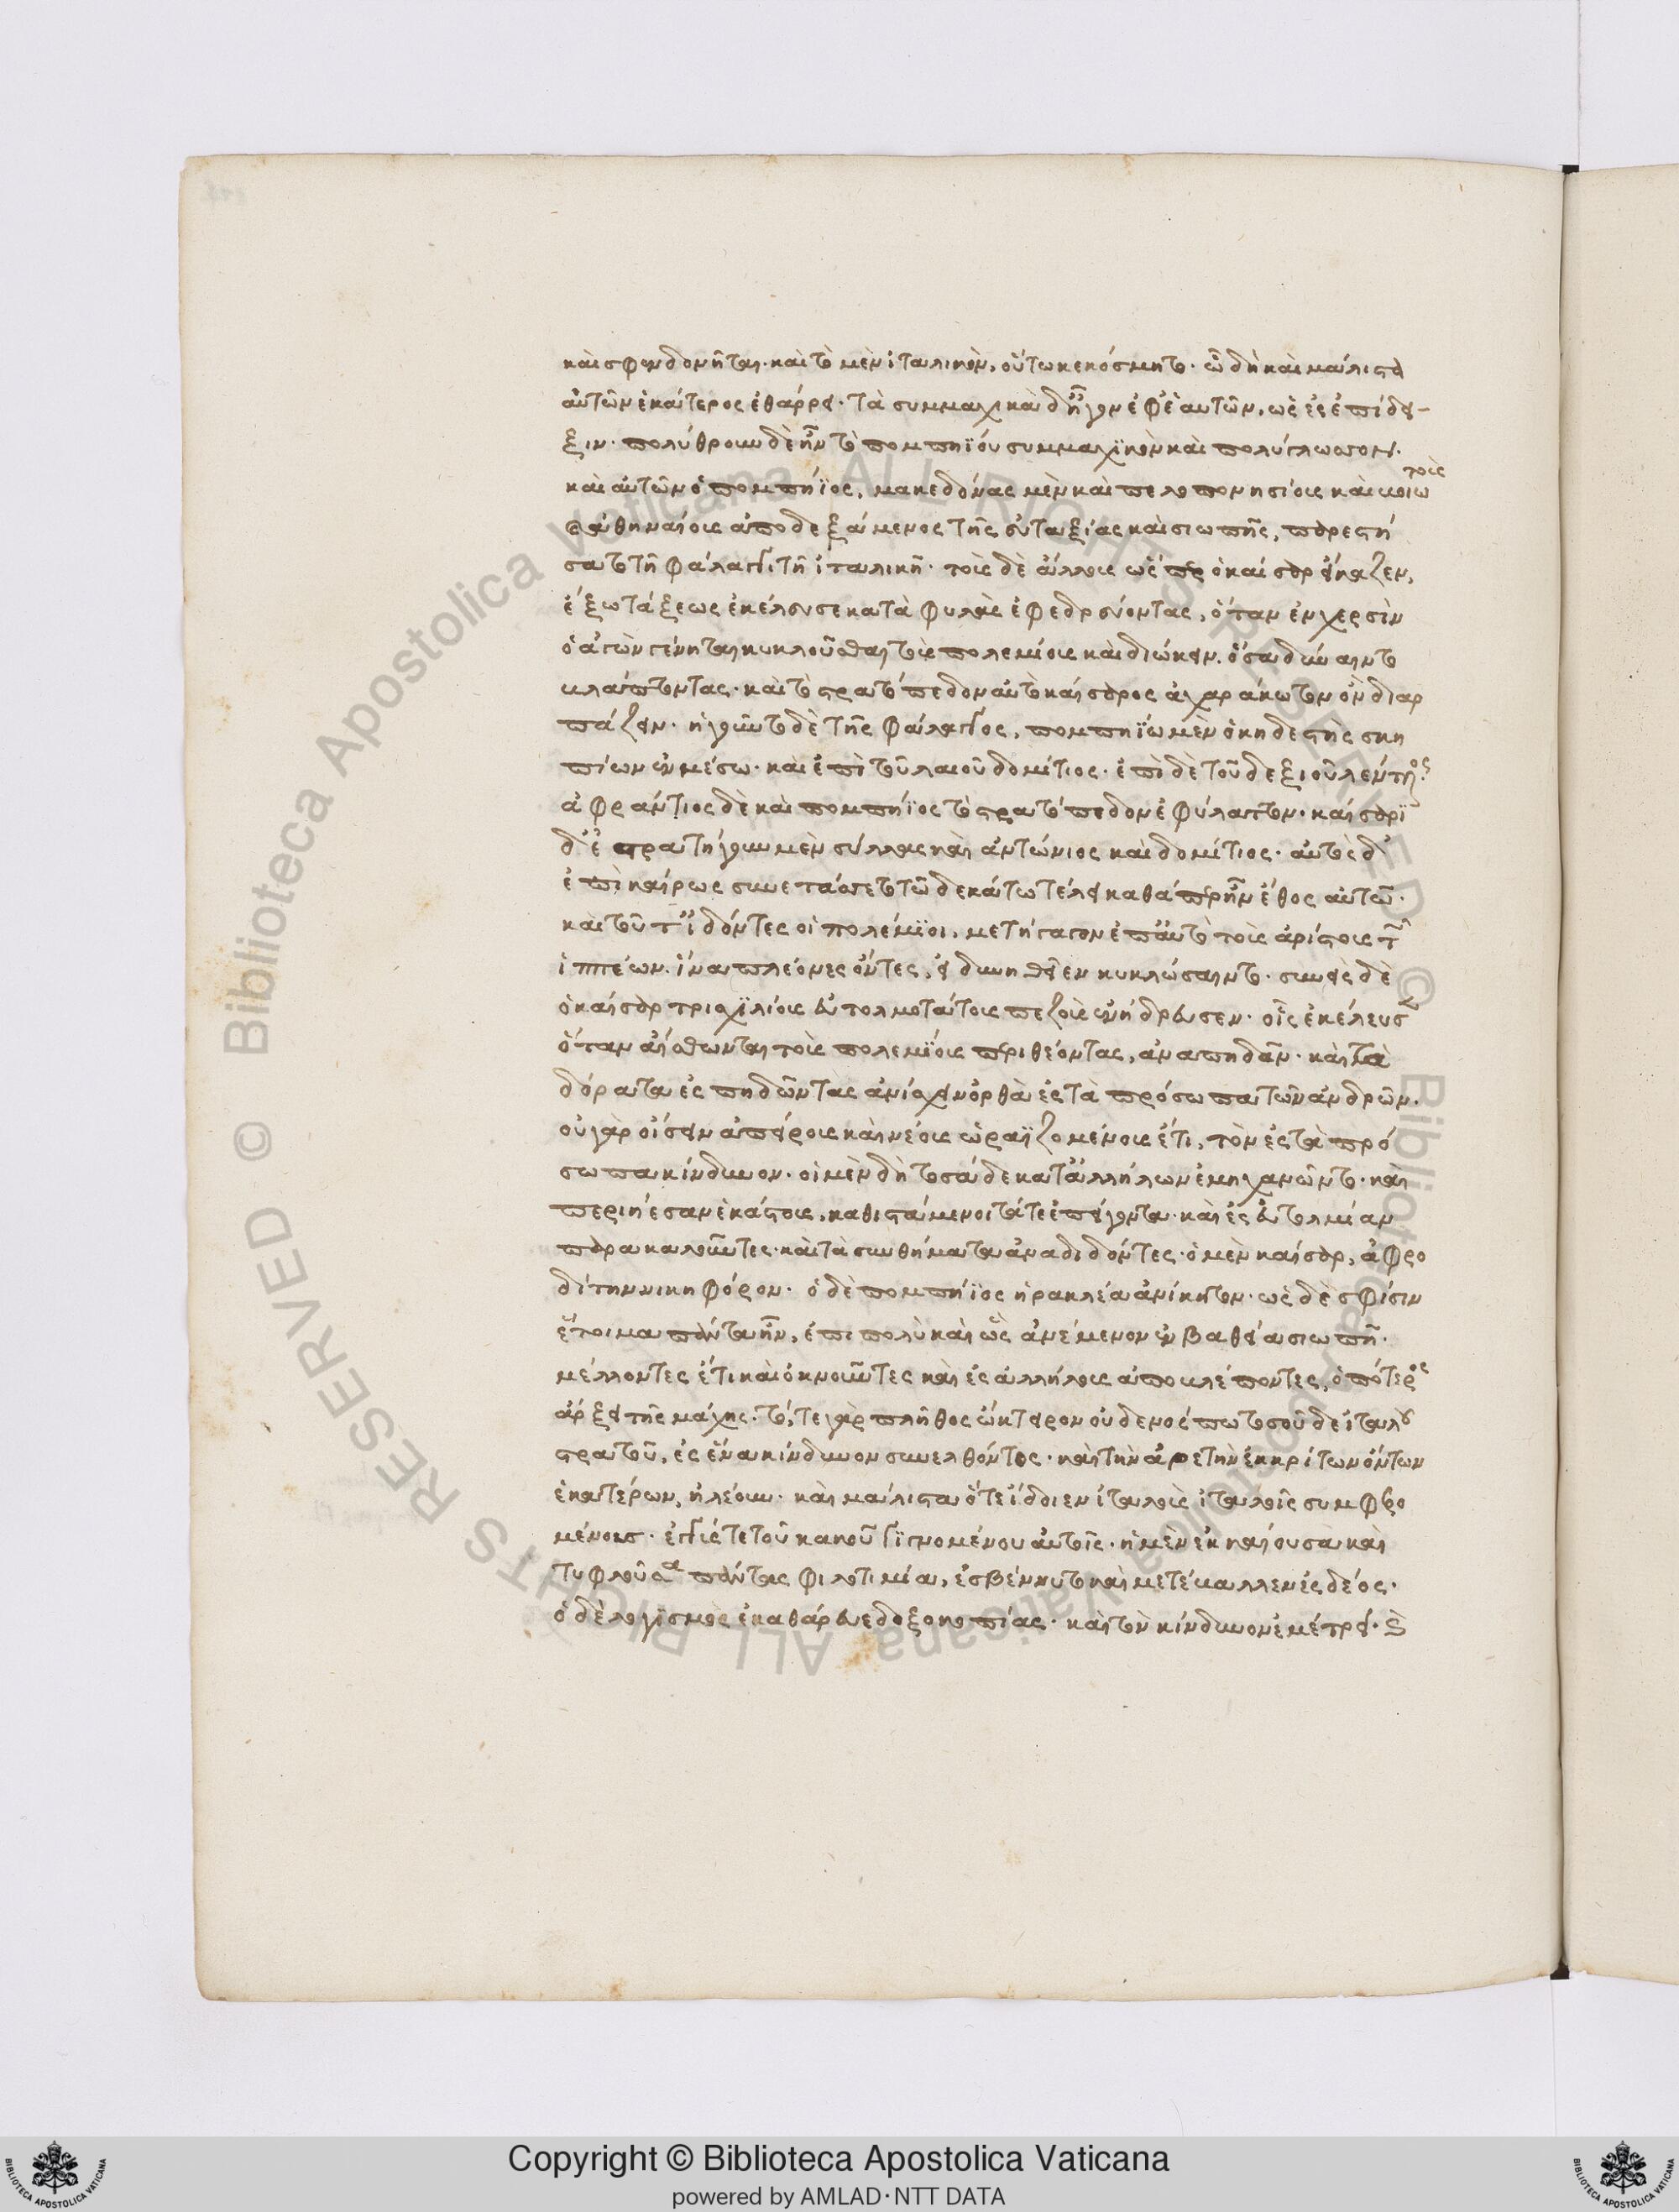 καὶ σφενδονῆται· καὶ τὸ μὲν ἰταλικὸν, οὕτω κεκόσμητο· ὧ δὴ καὶ μάλιστα
αὐτῶν ἑκάτερος ἐθάρρει· τὰ συμμαχικὰ δ' ἦγον ἐφ' ἑαυτῶν, ὡς ἐς ἐπίδει-
ξιν· πολύθρουν δὲ ἦν τὸ πομπηΐου συμμαχϊκὸν καὶ πολύγλωσσον.
καὶ αὐτῶν ὁ πομπήϊος, μακεδόνας μὲν καὶ πελοπονησίοις καὶ βοιω
τοῖς
αθηναίοις ἀποδεξάμενος τῆς εὐταξίας καὶ σιωπῆς, παρεστή
σατο τῆ φάλαγγι τῆ ἰταλικῆ· τοῖς δὲ ἄλλοις ὥσπερ ὁ καίσαρ είκαζεν,
ἔξω τάξεως ἐκέλευσε κατὰ φυλὰς ἐφεδρεύοντας, ὅταν ἐν χερσὶν
ὁ ἀγὼν γένηται κυκλοῦσθαι τοὺς πολεμίοις καὶ διώκειν. ὅσα δύναιντο
βλάπτοντας· καὶ τὸ στρατόπεδον αὐτὸ καίσαρος ἀχαράκωτον ὂν διαρ
πάζειν· ἡγοῦντο δὲ τῆς φάλαγγος, πομπηΐω μὲν ὁ κηδεστὴς σκη
πίων ἐν μέσω· καὶ ἐπὶ τοῦ λαιοῦ δομίτιος· ἐπὶ δὲ τοῦ δεξιοῦ λέντλος
ἀφράντιος δὲ καὶ πομπήϊος τὸ στρατόπεδον ἐφύλαττον· καίσαρϊ
δ' ἐστρατήγουν μὲν σύλλας καὶ ἀντώνιος καὶ δομίτιος· αὐτὸς δ'
ἐπὶ καίρως συνετάσσετο τῶ δεκάτω τέλει καθάπερ ἦν ἔθος αὐτῶ·
καὶ τοῦτ' ἰδόντες οἱ πολέμϊοι, μετήγαγον ἐπ' αὐτὸ τοὶς ἀρίστοις τῶν
ἱππέων. ἵνα πλέονες ὄντες, εἰ δυνηθεῖεν κυκλώσαιντο· συνεὶς δὲ
ὁ καίσαρ τρισχϊλίοις εὐτολμοτάτοις πεζοὶς ἐνήδρευσεν· οἷς ἐκέλευσεν
ὅταν αἴσθωνται τοὶς πολεμίοις περιθέοντας, ἀναπηδᾶν· καὶ τὰ
δόρατα ἐς πηδῶντας ἀνίσχειν ὀρθὰ ἐς τὰ πρόσωπα τῶν ἀνδρῶν·
οὐ γὰρ οἴσειν ἀπείροις καὶ νέοις ὡραϊζομένοις ἔτι, τὸν ἐς τὰ πρό
σωπα κίνδυνον· οἱ μὲν δὴ τοσάδε κατ' ἀλλήλων ἐμηχανῶντο· καὶ
περιήεσαν ἑκάστοις, καθιστάμενοι τά τε ἐπείγοντα· καὶ ἐς εὐτολμίαν
παρακαλοῦντες· καὶ τὰ συνθήματα ἀναδιδόντες· ὁ μὲν καίσαρ, ἀφρο
δίτην νικηφόρον· ὁ δὲ πομπήϊος ἡρακλέα ἀνίκητον· ὡς δὲ σφίσιν
ἕτοιμα πάντα ἦν, ἐπι πολὺ καὶ ὣς ἀνέμενον ἐν βαθεία σιωπῆ·
μέλλοντες ἔτι καὶ ὀκνοῦντες καὶ ἐς ἀλλήλοις ἀποβλέποντες, ὁπότερος
ἄρξει τῆς μάχης· τό, τε γὰρ πλῆθος ὤκτειρον οὐδενός πω τοσοῦδε ἰταλοῦ
στρατοῦ, ἐς ἕνα κίνδυνον συνελθόντος· καὶ τὴν ἀρετὴν ἐκκρίτων ὄντων
ἑκατέρων, ἠλέουν· καὶ μάλιστα ὅτε ἴδοιεν ἰταλοὶς ἰταλοῖς συμφερο
μένοις· ἐγγύς τε τοῦ κακοῦ γϊγνομένου αὐτοῖς· ἡ μὲν ἐκκαίουσα καὶ
τυφλοῦσα πάντας φιλοτιμία, ἐσβέννυτο καὶ μετέβαλλεν ἐς δέος·
ὁ δὲ λογϊσμὸς ἐκαθάρευε δοξοκοπίας· καὶ τὸν κίνδυνον ἐμέτρει· καὶ
Copyright © Biblioteca Apostolica Vaticana
powered by AMLAD·NTT DATA